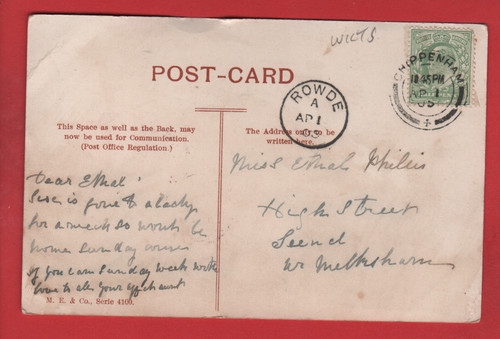 WILTS
POST-CARD
CHIPPENHAM
10.45PM
AP 1
05
ROWDE
A
AP 1
05
This Space as well as the Back, may
now be used for Communication.
(Post Office Regulation.)
The Address only to be
written here.
Dear Ethel
is gone to a lady
for a week so wont be
home Sunday
if you can Sunday week with
love to all your
M. E. & Co., Serie 4109.
Miss Ethel
High Street
Seend
nr Melksham